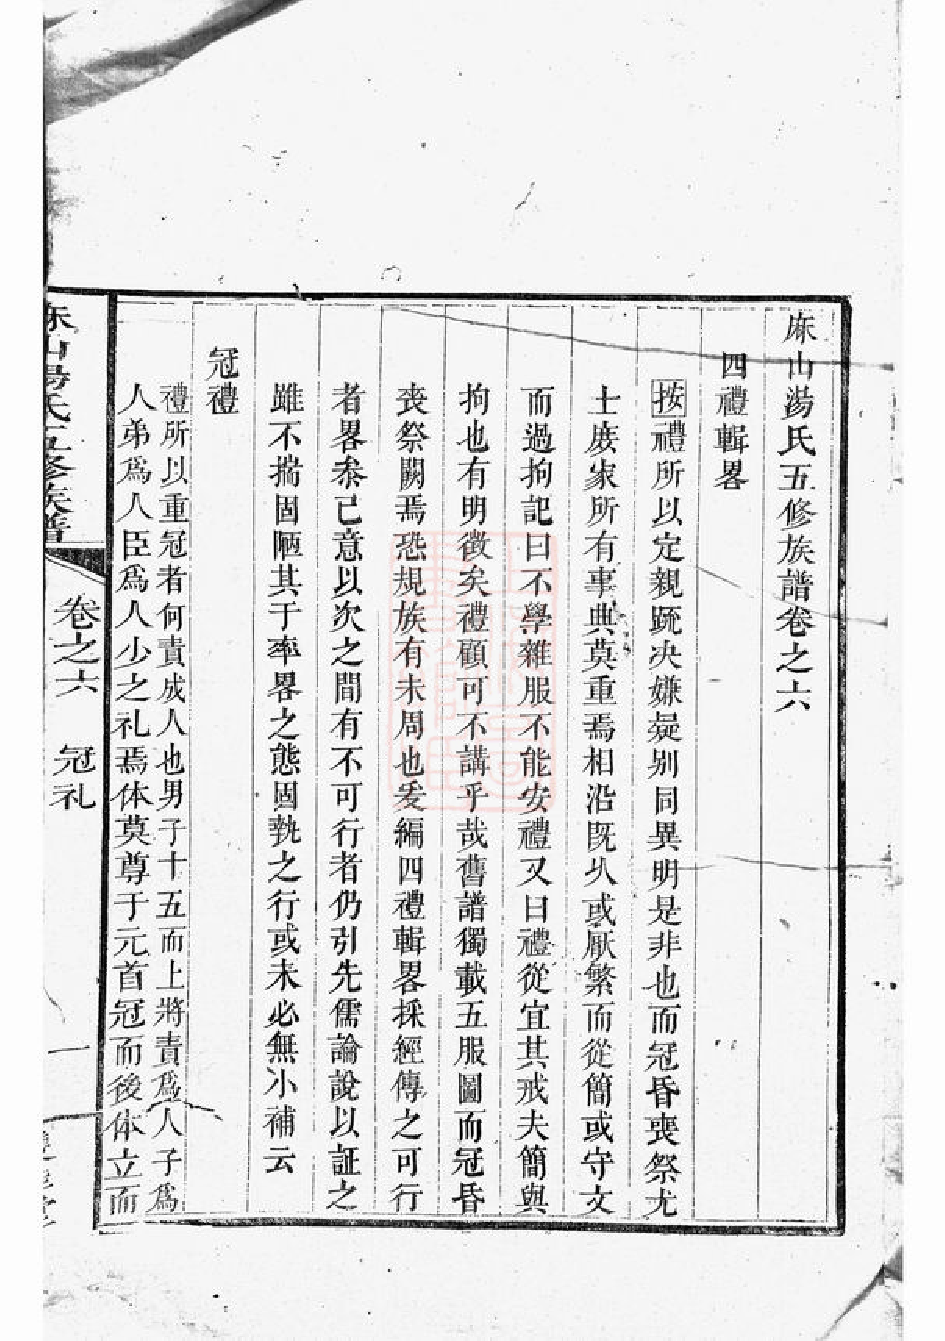 麻山湯氏五修族譜卷之六
四禮輯畧
按禮所以定親䟽决嫌疑别同異明是非也而冠昏喪祭尤
士庻家所有事典莫重焉相沿旣乆或厭繁而從簡或守文
而過拘記曰不學雜服不能安禮又曰禮從宜其戒夫簡與
拘也有明徵矣禮顧可不講乎哉舊譜獨載五服圖而冠昏
喪祭闕焉恐規族有未周也爰編四禮輯畧採經傳之可行
者畧叅己意以次之間有不可行者仍引先儒論說以証之
雖不揣固陋其于率畧之態固執之行或未必無小補云
冠禮
禮所以重冠者何責成人也男子十五而上將責爲人子爲
人弟爲人臣爲人少之礼焉体莫尊于元首冠而後体立而
麻山湯氏五修族譜
卷之六
冠礼
一